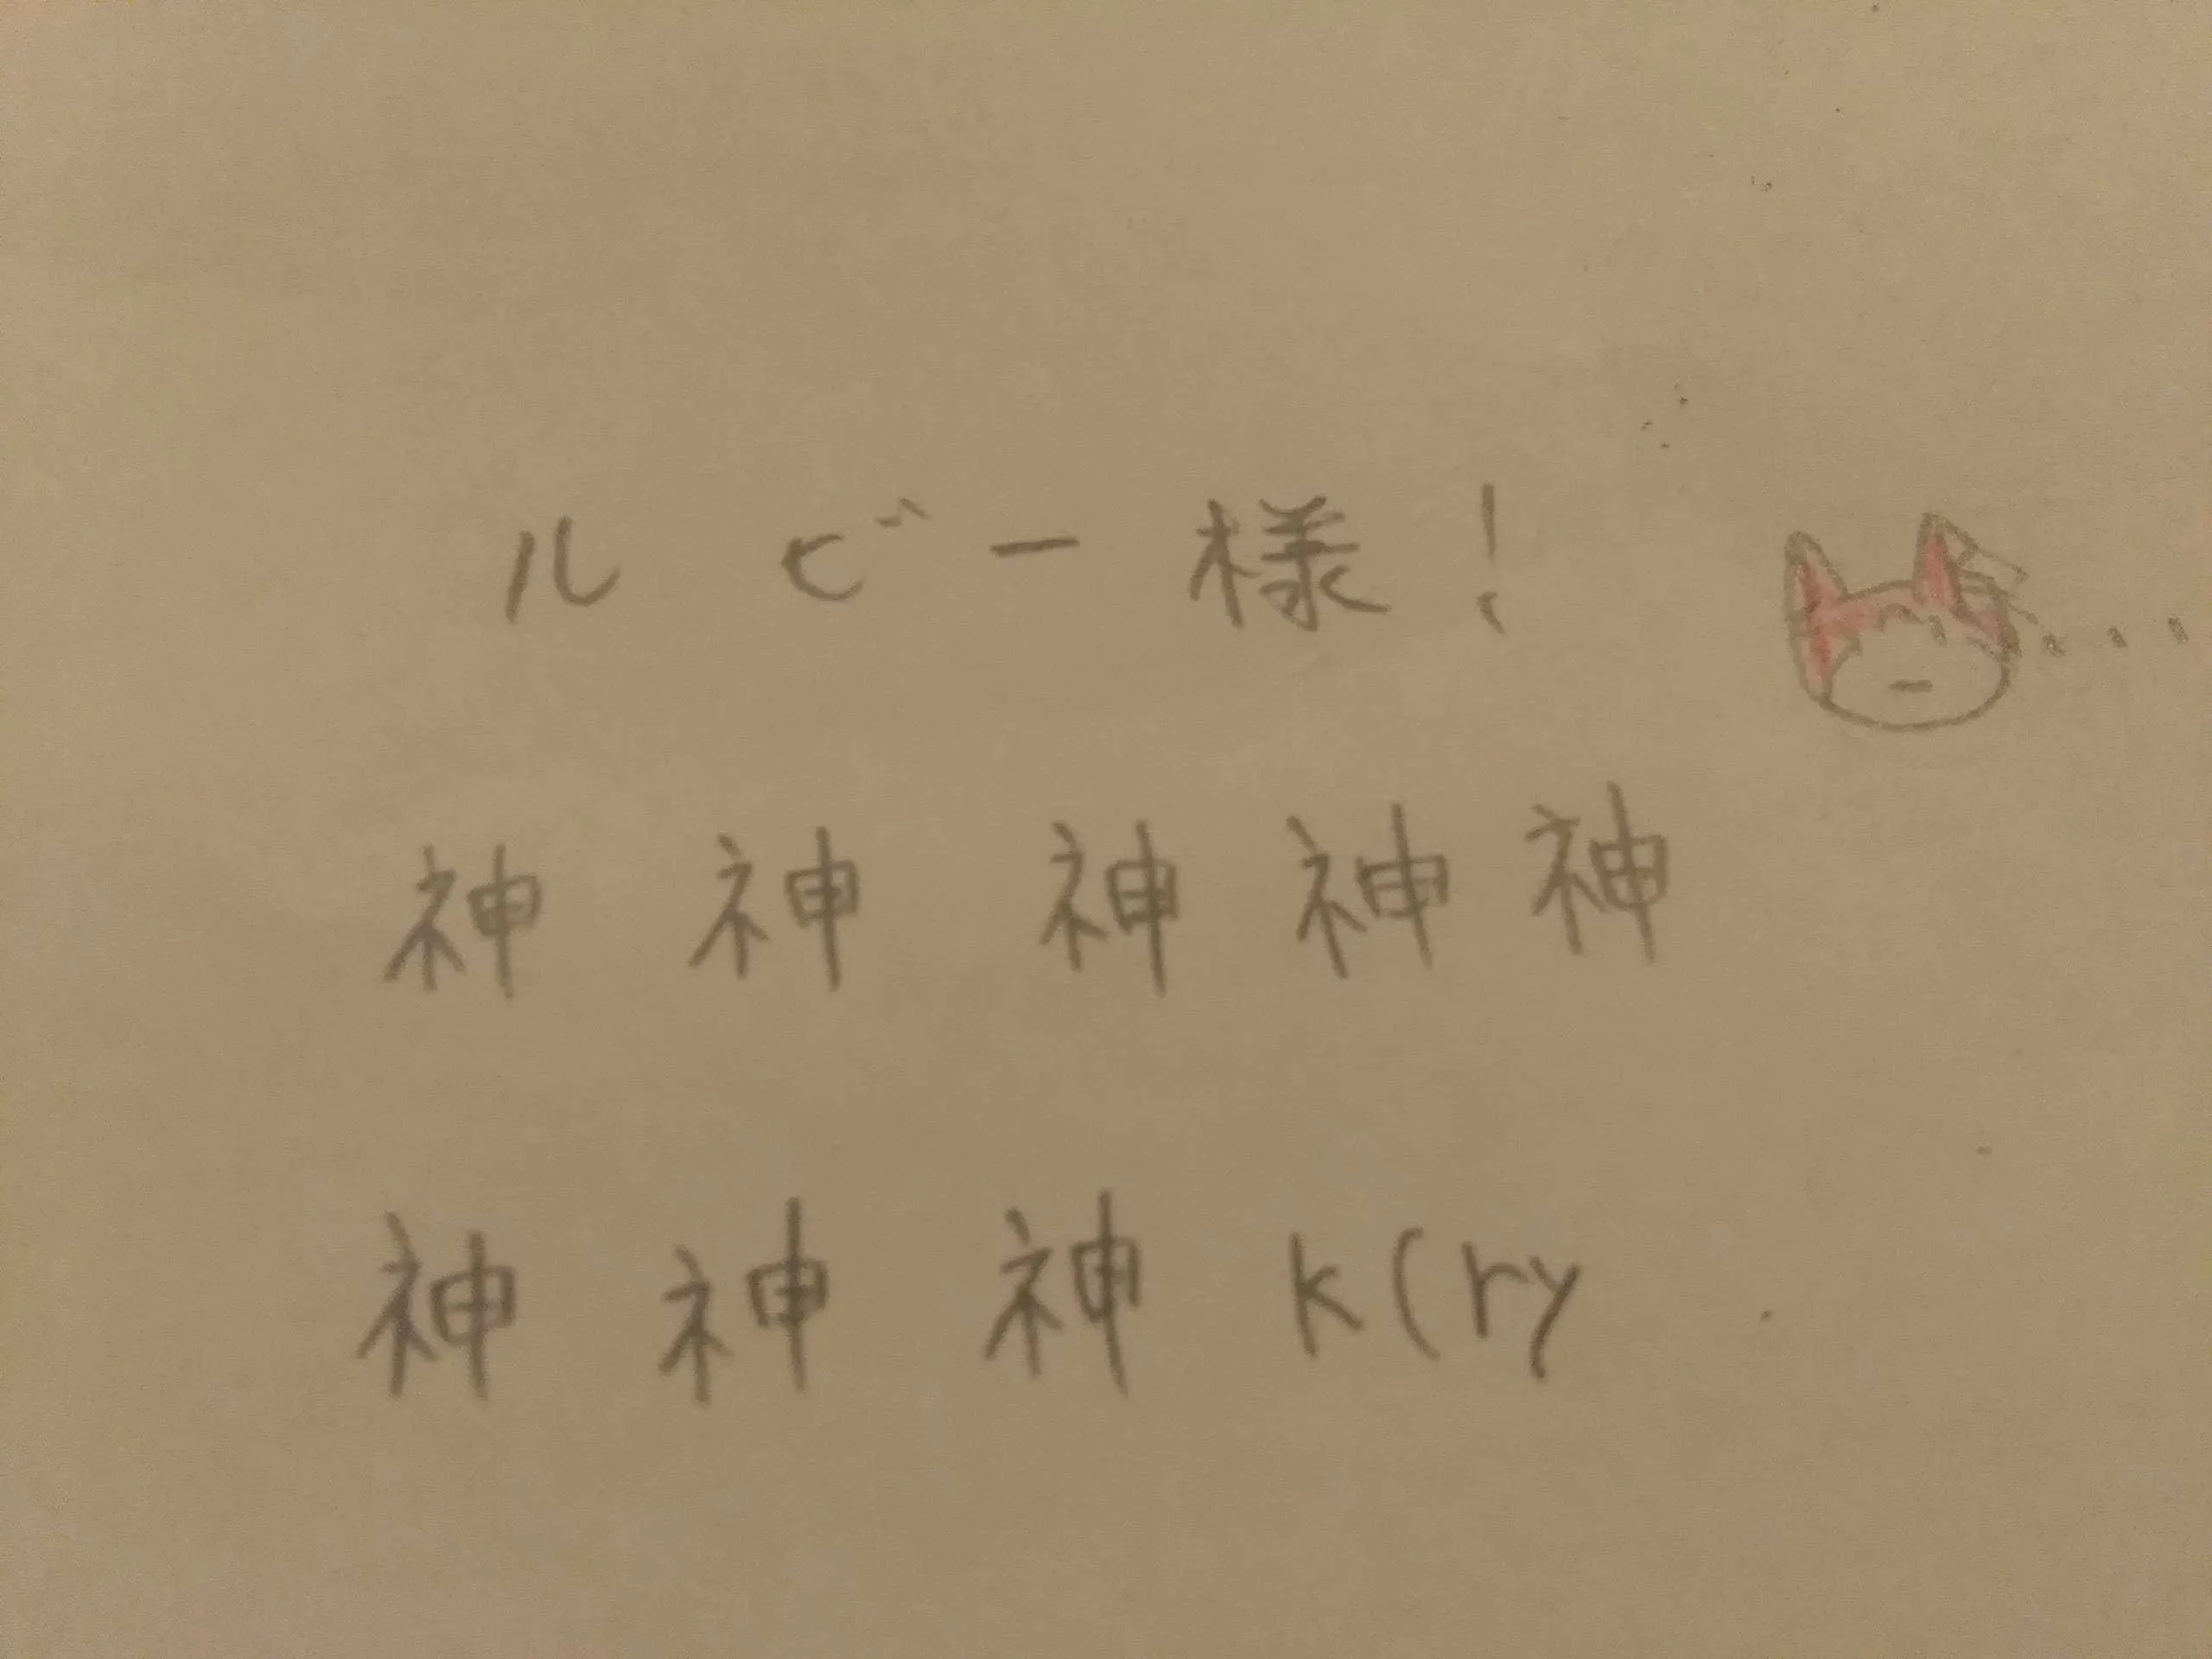 ルビー様! ...
神神神神神
神神神k(ry